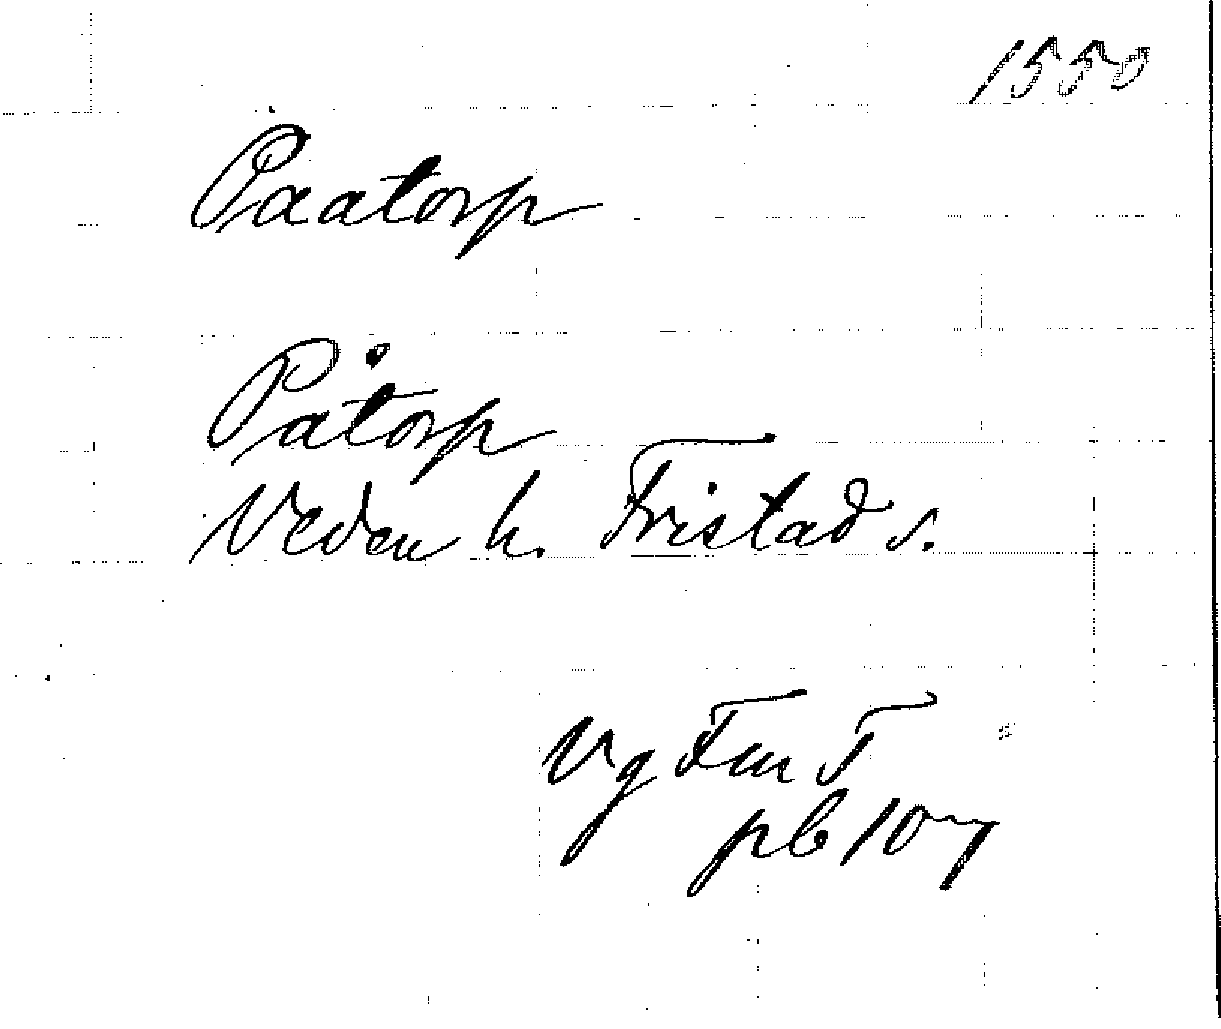 1550
Paatorp
Påtorp
Veden h. Fristad s.
Vg Fur 5
pb 107